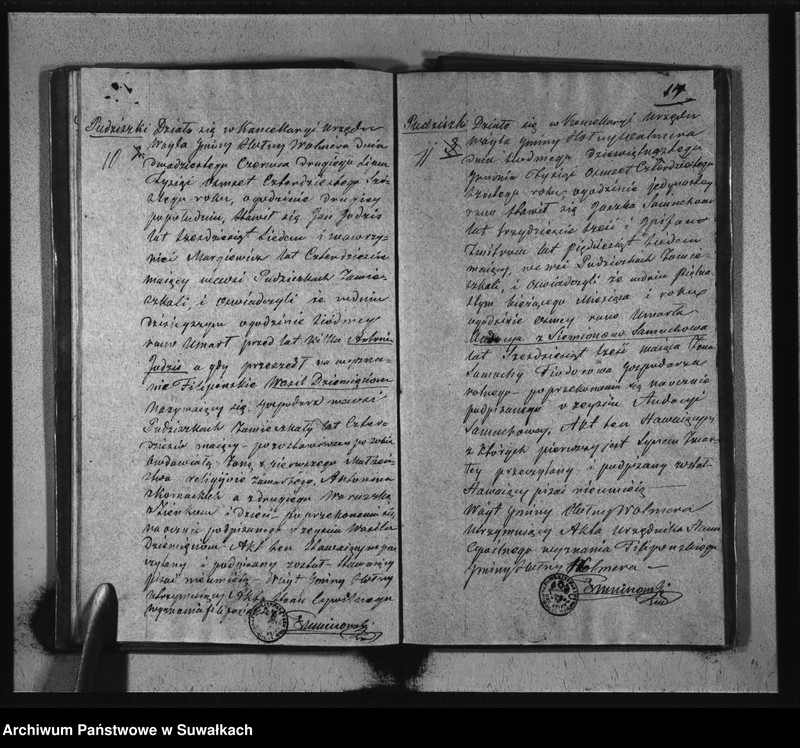 Pudziszki Działo się w Kancellaryi Urzędu
10
Wóyta Gminy Hołny Wolmera Dnia
dwudziestego Czerwca Drugiego Lipca
Tysiąc Ośmset Czterdziestego Szó-
stego roku, o godzinie drugiej
popołudniu, Stawił się Jan Jodzis
lat sześdziesiąt Siedem i Wawrzy-
niec Margiewicz lat Czterdzieści
mający we wsi Pudziszkach Zamie-
szkali, i oświadczyli że w dniu
dzisiejszym o godzinie siódmej
rano Umarł przed lat kilku Antoni
Jodzis a gdy przeszedł na wyzna-
nie Filipońskie Wasil Dziemięnow
nazywający się, Gospodarz we wsi
Pudziszkach Zamieszkały lat Czter-
dzieści mający - pozostawiwszy po sobie
Owdowiałą Żonę z pierwszego Małżeń-
stwa religijnie zawartego, Antonina
i Dzieci po przekonaniu się
naocznie podpisanego o zejściu Wasila
Dziemięnow Akt ten Stawającym prze
czytany i podpisany został - Stawający
pisać nieumieją - Wóyt Gminy Hołny
Utrzymujący Akta Stanu Cywilnego
wyznania
14
Pudziszki Działo się w Kancellaryi Urzędu
11
Wóyta Gminy Hołny Wolmera
dnia Siódmego Dziewiętnastego
Grudnia Tysiąc Ośmset Czterdziestego
szóstego roku, o godzinie jedynastej
rano Stawił się Samuchow
lat trzydzieści sześć i
lat pięćdziesiąt Siedem
mający, we wsi Pudziszkach Zamie-
szkali, i oświadczyli że w dniu Piętna-
stym bieżącego Miesiąca i roku
o godzinie ósmej rano Umarła
z Siemionów Samuchowa
lat Sześdziesiąt sześć mająca Żona
Samuchy Fiodorowa Gospodarza
rolnego - po przekonaniu się naocznie
podpisanego o zejściu
Samuchowej, Akt ten Stawającym
z których pierwszy jest Synem Zmar-
łej przeczytany i podpisany został
Stawający pisać nieumieją -
Wóyt Gminy Hołny Wolmera
Utrzymujący Akta Urzędnika Stanu
Cywilnego wyznania Filipońskiego
Gminy Hołny Wolmera -
Archiwum Państwowe w Suwałkach